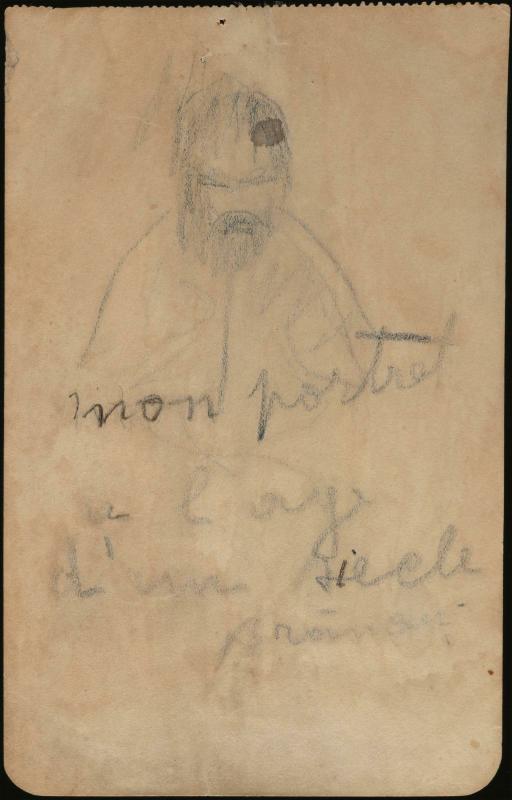 mon portret
a l'age
d'un siecle